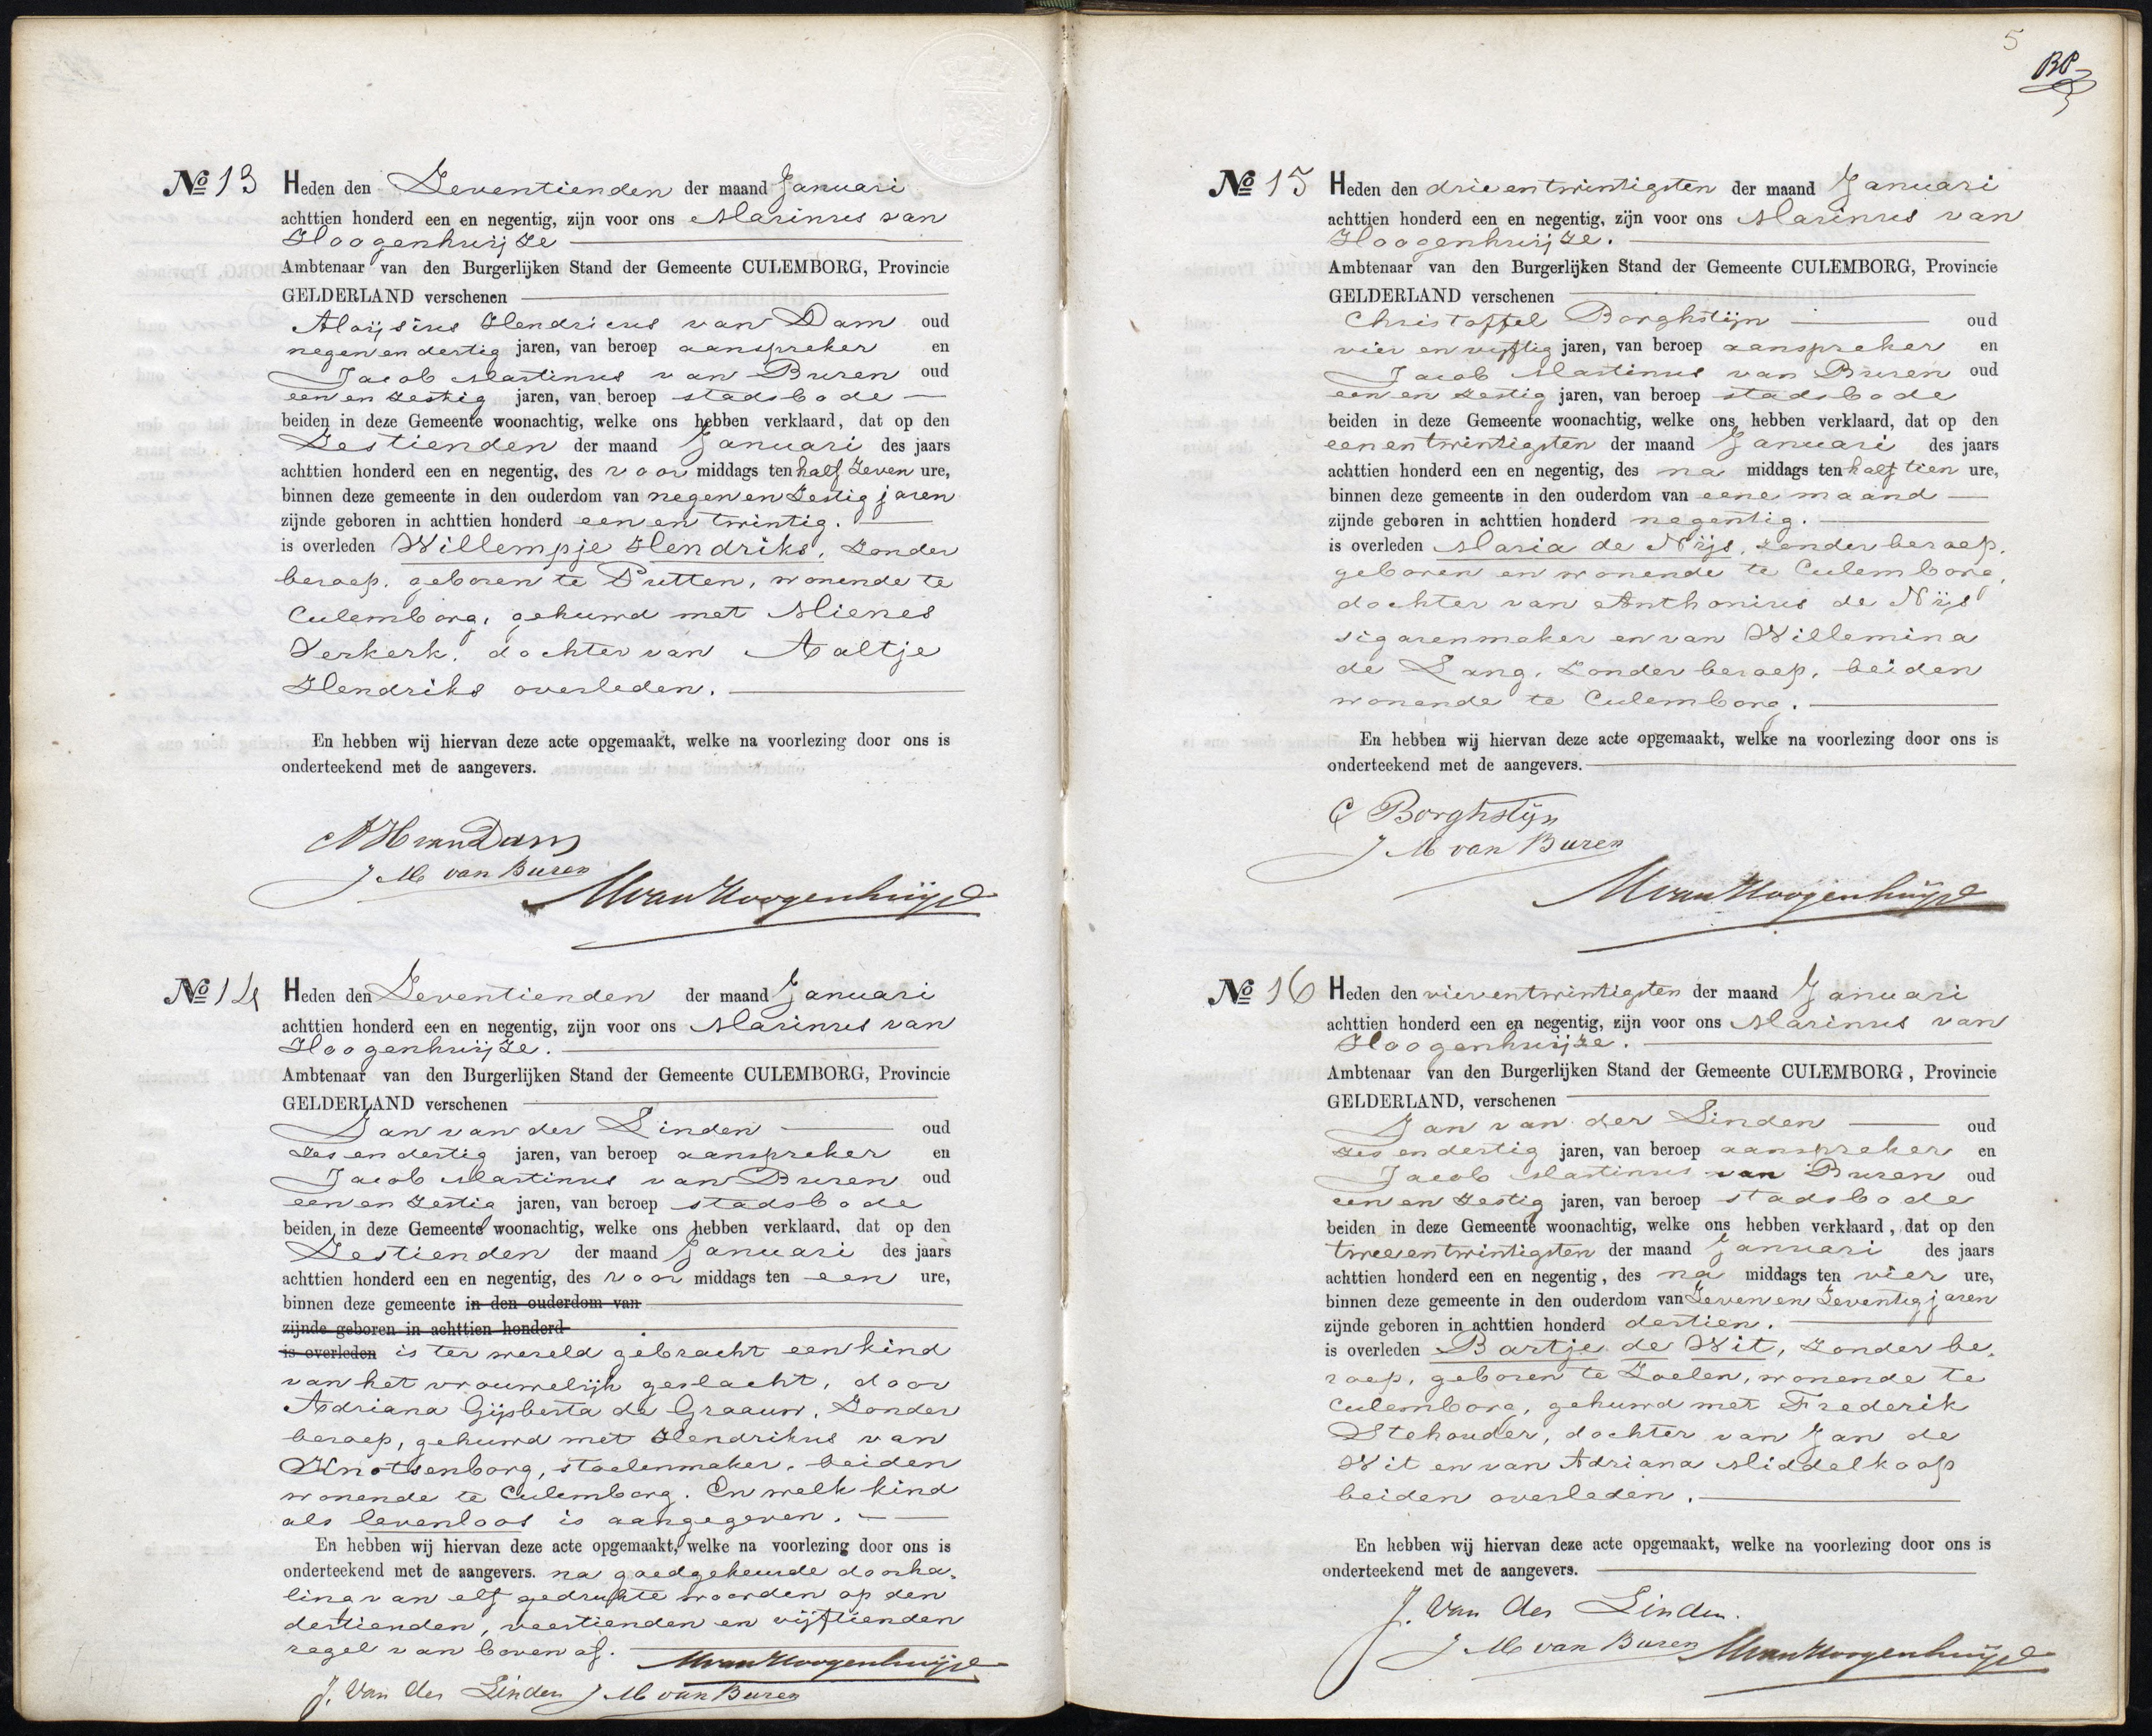 No 13 Heden den Zeventienden der maand Januari
achttien honderd een en negentig, zijn voor ons Marinus van
Hoogenhuijze
Ambtenaar van den Burgerlijken Stand der Gemeente CULEMBORG, Provincie
GELDERLAND verschenen
Aloijsius Hendricus van Dam oud
negen en dertig jaren, van beroep aanspreker en
Jacob Martinus van Buren oud
een en zestig jaren, van beroep stadsbode
beiden in deze Gemeente woonachtig, welke ons hebben verklaard, dat op den
Zestienden der maand Januari des jaars
achttien honderd een en negentig, des voor middags ten half zeven ure,
binnen deze gemeente in den ouderdom van negen en zestig jaren
zijnde geboren in achttien honderd een en twintig.
is overleden Willempje Hendriks, zonder
beroep, geboren te Putten, wonende te
Culemborg, gehuwd met Mienes
Verkerk, dochter van Aaltje
Hendriks overleden.
En hebben wij hiervan deze acte opgemaakt, welke na voorlezing door ons is
onderteekend met de aangevers.
AH van Dam
J M van Buren
M van Hoogenhuijze
No 14 Heden den Zeventienden der maand Januari
achttien honderd een en negentig, zijn voor ons Marinus van
Hoogenhuijze.
Ambtenaar van den Burgerlijken Stand der Gemeente CULEMBORG, Provincie
GELDERLAND verschenen
Jan van der Linden oud
zes en dertig jaren, van beroep aanspreker en
Jacob Martinus van Buren oud
een en zestig jaren, van beroep stadsbode
beiden in deze Gemeente woonachtig, welke ons hebben verklaard, dat op den
Zestienden der maand Januari des jaars
achttien honderd een en negentig, des voor middags ten een ure,
binnen deze gemeente in den ouderdom van
zijnde geboren in achttien honderd
is overleden is ter wereld gebracht een kind
van het vrouwelijk geslacht, door
Adriana Gijsberta de Graauw, zonder
beroep, gehuwd met Hendrikus van
Knotsenborg, stoelenmaker, beiden
wonende te Culemborg. En welk kind
als levenloos is aangegeven.
En hebben wij hiervan deze acte opgemaakt, welke na voorlezing door ons is
onderteekend met de aangevers. na goedgekeurde doorha-
ling van elf gedrukte woorden op den
dertienden, veertienden en vijftienden
regel van boven af. M van Hoogenhuijze
J. Van der Linden J M van Buren
5
BP
No 15 Heden den drie en twintigsten der maand Januari
achttien honderd een en negentig, zijn voor ons Marinus van
Hoogenhuijze.
Ambtenaar van den Burgerlijken Stand der Gemeente CULEMBORG, Provincie
GELDERLAND verschenen
Christoffel Borghstijn oud
vier en vijftig jaren, van beroep aanspreker en
Jacob Martinus van Buren oud
een en zestig jaren, van beroep stadsbode
beiden in deze Gemeente woonachtig, welke ons hebben verklaard, dat op den
een en twintigsten der maand Januari des jaars
achttien honderd een en negentig, des na middags ten half tien ure,
binnen deze gemeente in den ouderdom van eene maand
zijnde geboren in achttien honderd negentig.
is overleden Maria de Nijs, zonder beroep,
geboren en wonende te Culemborg,
dochter van Anthonius de Nijs
sigarenmaker en van Willemina
de Lang, zonder beroep, beiden
wonende te Culemborg.
En hebben wij hiervan deze acte opgemaakt, welke na voorlezing door ons is
onderteekend met de aangevers.
C Borghstijn
J M van Buren
M van Hoogenhuijze
No 16 Heden den vierentwintigsten der maand Januari
achttien honderd een en negentig, zijn voor ons Marinus van
Hoogenhuijze.
Ambtenaar van den Burgerlijken Stand der Gemeente CULEMBORG, Provincie
GELDERLAND, verschenen
Jan van der Linden oud
zes en dertig jaren, van beroep aanspreker en
Jacob Martinus van Buren oud
een en zestig jaren, van beroep stadsbode
beiden in deze Gemeente woonachtig, welke ons hebben verklaard, dat op den
tweeentwintigsten der maand Januari des jaars
achttien honderd een en negentig, des na middags ten vier ure,
binnen deze gemeente in den ouderdom van Zeven en Zeventig jaren
zijnde geboren in achttien honderd dertien.
is overleden Bartje de Wit, zonder be-
roep, geboren te Zoelen, wonende te
Culemborg, gehuwd met Frederik
Stehouder, dochter van Jan de
Wit en van Adriana Middelkoop
beiden overleden.
En hebben wij hiervan deze acte opgemaakt, welke na voorlezing door ons is
onderteekend met de aangevers.
J. Van der Linden.
J M van Buren M van Hoogenhuijze